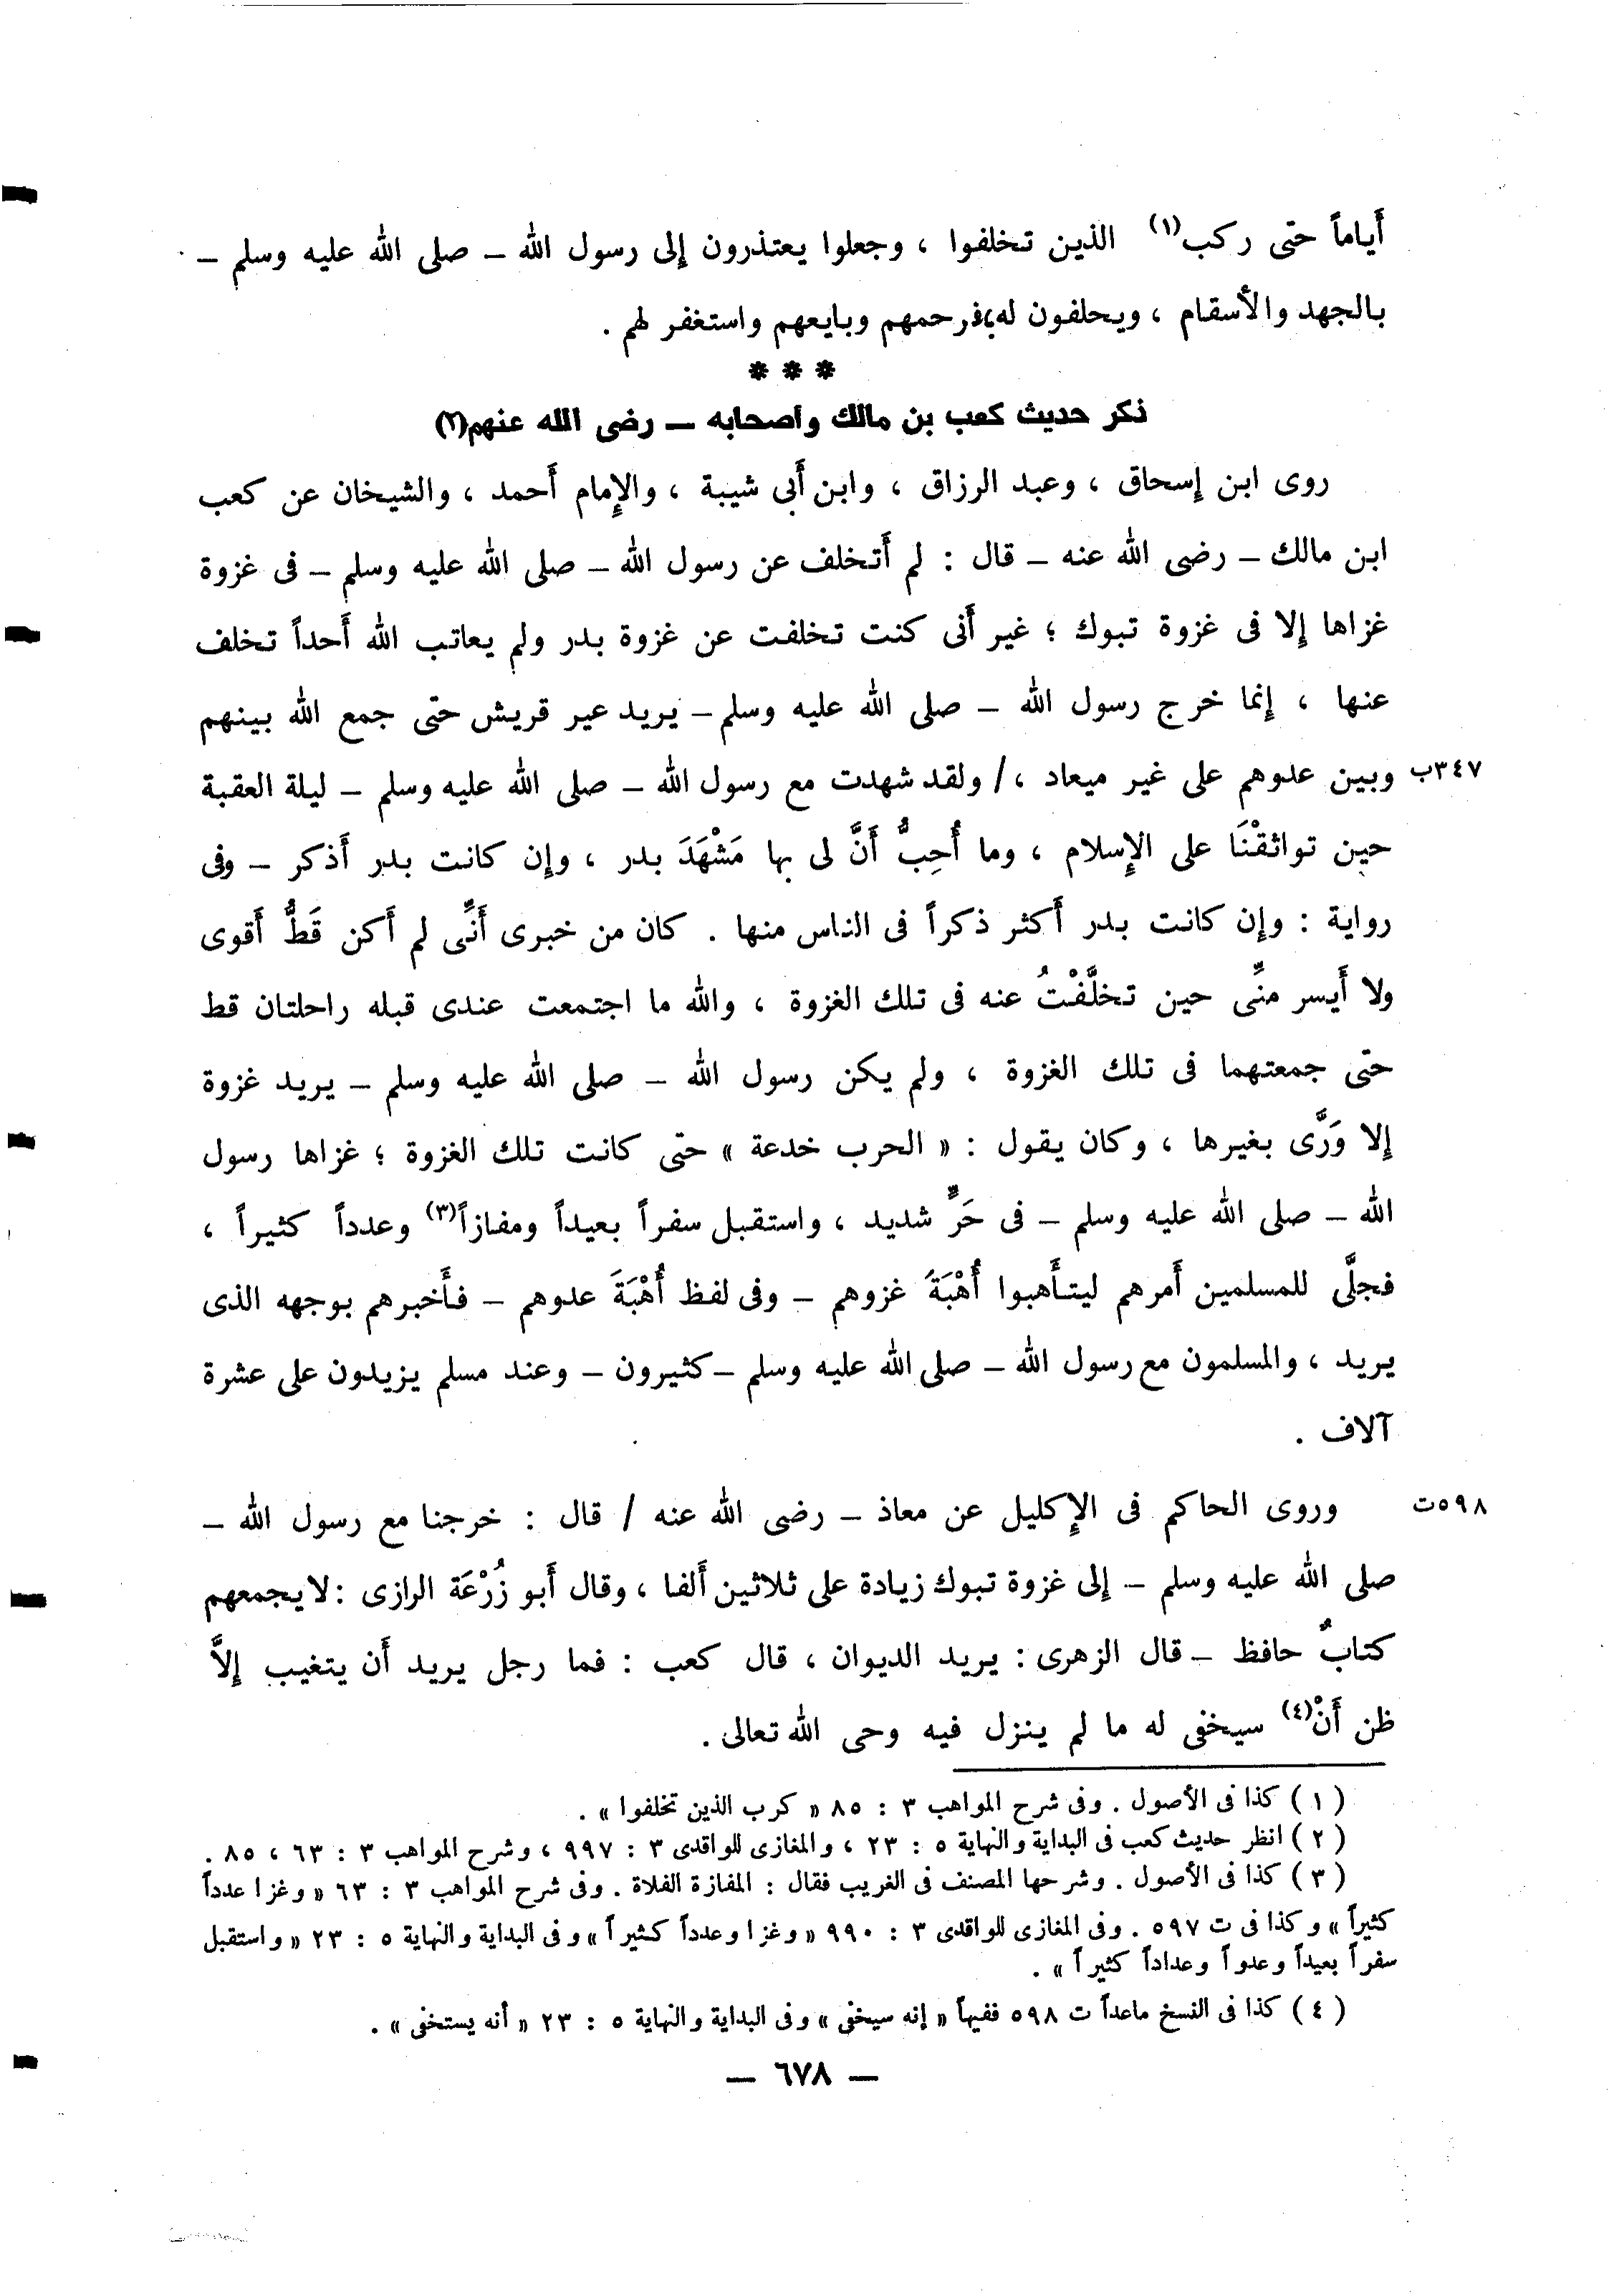 أَياماً حتى ركب(١) الذين تخلفوا ، وجعلوا يعتذرون إلى رسول الله – صلى الله عليه وسلم –
بالجهد والأسقام ، ويحلفون له، فرحمهم وبايعهم واستغفر لهم .
* * *
ذكر حديث كعب بن مالك وأصحابه – رضى الله عنهم(٢)
روى ابن إسحاق ، وعبد الرزاق ، وابن أَبى شيبة ، والإِمام أَحمد ، والشيخان عن كعب
ابن مالك – رضى الله عنه – قال : لم أَتخلف عن رسول الله – صلى الله عليه وسلم – فى غزوة
غزاها إِلا فى غزوة تبوك ؛ غير أَنى كنت تخلفت عن غزوة بدر ولم يعاتب الله أَحداً تخلف
عنها ، إِنما خرج رسول الله – صلى الله عليه وسلم – يريد عير قريش حتى جمع الله بينهم
وبين عدوهم على غير ميعاد ، / ولقد شهدت مع رسول الله – صلى الله عليه وسلم – ليلة العقبة ٣٤٧ب
حين تواثقْنَا على الإِسلام ، وما أُحِبُّ أَنَّ لى بها مَشْهَدَ بدر ، وإن كانت بدر أَذكر – وفى
رواية : وإن كانت بدر أَكثر ذكراً فى الناس منها . كان من خبرى أَنِّى لم أَكن قَطُّ أَقوى
ولا أَيسر منِّى حين تخلَّفْتُ عنه فى تلك الغزوة ، والله ما اجتمعت عندى قبله راحلتان قط
حتى جمعتهما فى تلك الغزوة ، ولم يكن رسول الله – صلى الله عليه وسلم – يريد غزوة
إلا وَرَّى بغيرها ، وكان يقول : « الحرب خدعة » حتى كانت تلك الغزوة ؛ غزاها رسول
الله – صلى الله عليه وسلم – فى حَرٍّ شديد ، واستقبل سفراً بعيداً ومفازاً(٣) وعدداً كثيراً ،
فجلَّى للمسلمين أَمرهم ليتأَهبوا أُهْبَةَ غزوهم – وفى لفظ أُهْبَةَ عدوهم – فأَخبرهم بوجهه الذى
يريد ، والمسلمون مع رسول الله – صلى الله عليه وسلم – كثيرون – وعند مسلم يزيدون على عشرة
آلاف .
وروى الحاكم فى الإِكليل عن معاذ – رضى الله عنه / قال : خرجنا مع رسول الله – ٥٩٨ت
صلى الله عليه وسلم – إلى غزوة تبوك زيادة على ثلاثين أَلفا ، وقال أَبو زُرْعَة الرازى : لا يجمعهم
كتابٌ حافظ – قال الزهرى : يريد الديوان ، قال كعب : فما رجل يريد أَن يتغيب إِلاَّ
ظن أَنْ(٤) سيخفى له ما لم ينزل فيه وحى الله تعالى .
( ١ ) كذا فى الأصول . وفى شرح المواهب ٣ : ٨٥ « كرب الذين تخلفوا » .
( ٢ ) انظر حديث كعب فى البداية والنهاية ٥ : ٢٣ ، والمغازى للواقدى ٣ : ٩٩٧ ، وشرح المواهب ٣ : ٦٣ ، ٨٥ .
( ٣ ) كذا فى الأصول . وشرحها المصنف فى الغريب فقال : المفازة الفلاة . وفى شرح المواهب ٣ : ٦٣ « وغزا عدداً
كثيراً » وكذا فى ت ٥٩٧ . وفى المغازى للواقدى ٣ : ٩٩٠ « وغزا وعدداً كثيراً » وفى البداية والنهاية ٥ : ٢٣ « واستقبل
سفراً بعيداً وعدواً وعداداً كثيراً » .
( ٤ ) كذا فى النسخ ماعداً ت ٥٩٨ ففيهاً « إنه سيخفى » وفى البداية والنهاية ٥ : ٢٣ « أنه يستخفى » .
– ٦٧٨ –